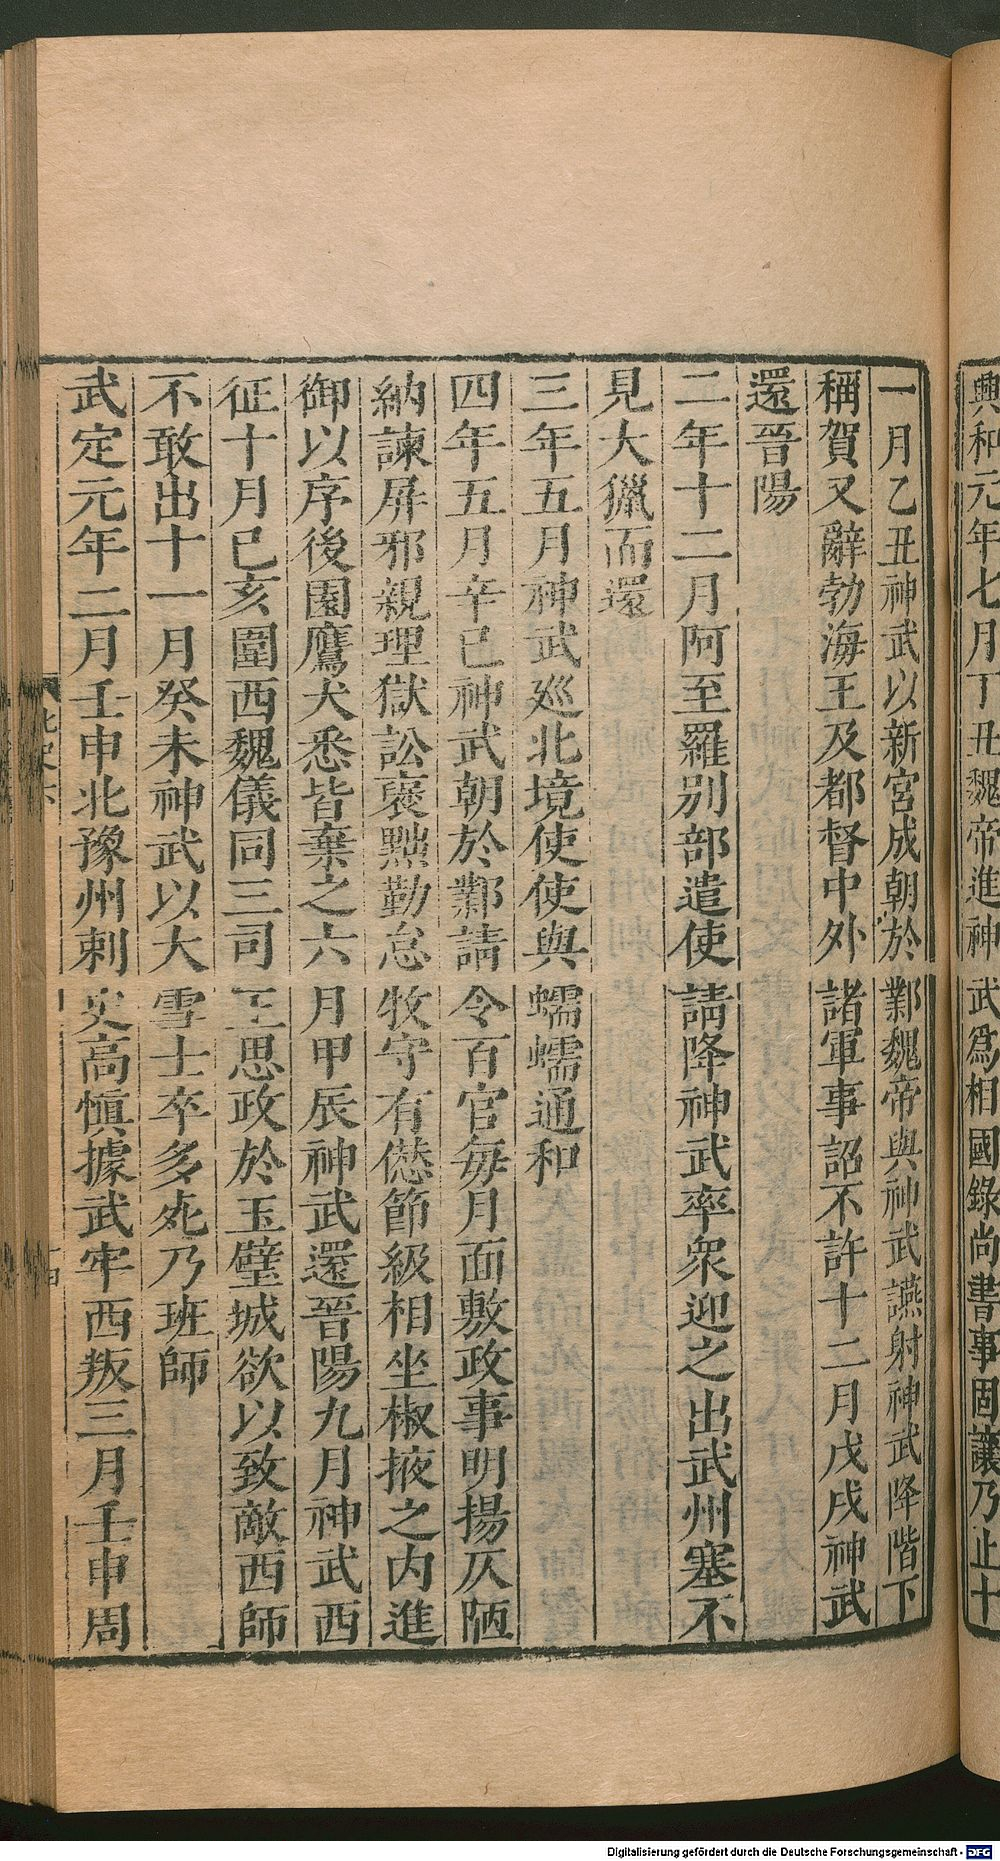 興和元年七月丁丑魏帝進神武爲相國錄尚書事固讓乃止十
一月乙丑神武以新宮成朝於鄴魏帝與神武讌射神武降階下
稱賀又辭勃海王及都督中外諸軍事詔不許十二月戊戌神武
還晉陽
二年十二月阿至羅別部遣使請降神武率衆迎之出武州塞不
見大獵而還
三年五月神武廵北境使使與蠕蠕通和
四年五月辛巳神武朝於鄴請令百官每月面敷政事明揚仄陋
納諫屏邪親理獄訟襃黜勤怠牧守有愆節級相坐椒掖之内進
御以序後園鷹犬悉皆棄之六月甲辰神武還晉陽九月神武西
征十月己亥圍西魏儀同三司王思政於玉壁城欲以致敵西師
不敢出十一月癸未神武以大雪士卒多死乃班師
武定元年二月壬申北豫州刺史高慎據武牢西叛三月壬申周
北史六
十四
Digitalisierung gefördert durch die Deutsche Forschungsgemeinschaft - DFG